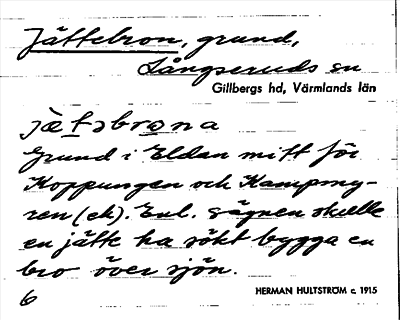 Jättebron, grund,
Långseruds sn
Gillbergs hd, Värmlands län
jä̀təbrona
Grund i Eldan mitt för
Koppungen och Kampmy-
ren (ek). Enl. sägnen skulle
en jätte ha sökt bygga en
bro över sjön.
6
HERMAN HULTSTRÖM c. 1915